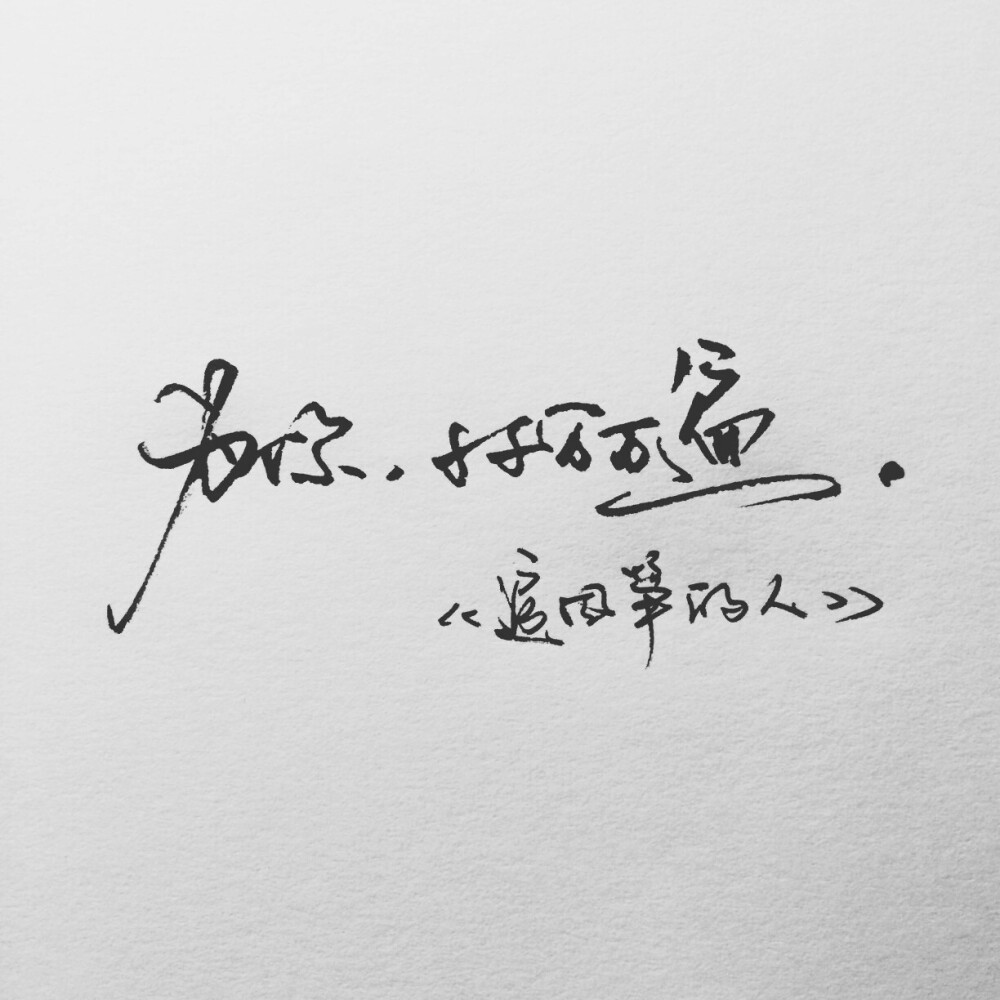 为你，千千万万遍．
《追风筝的人》